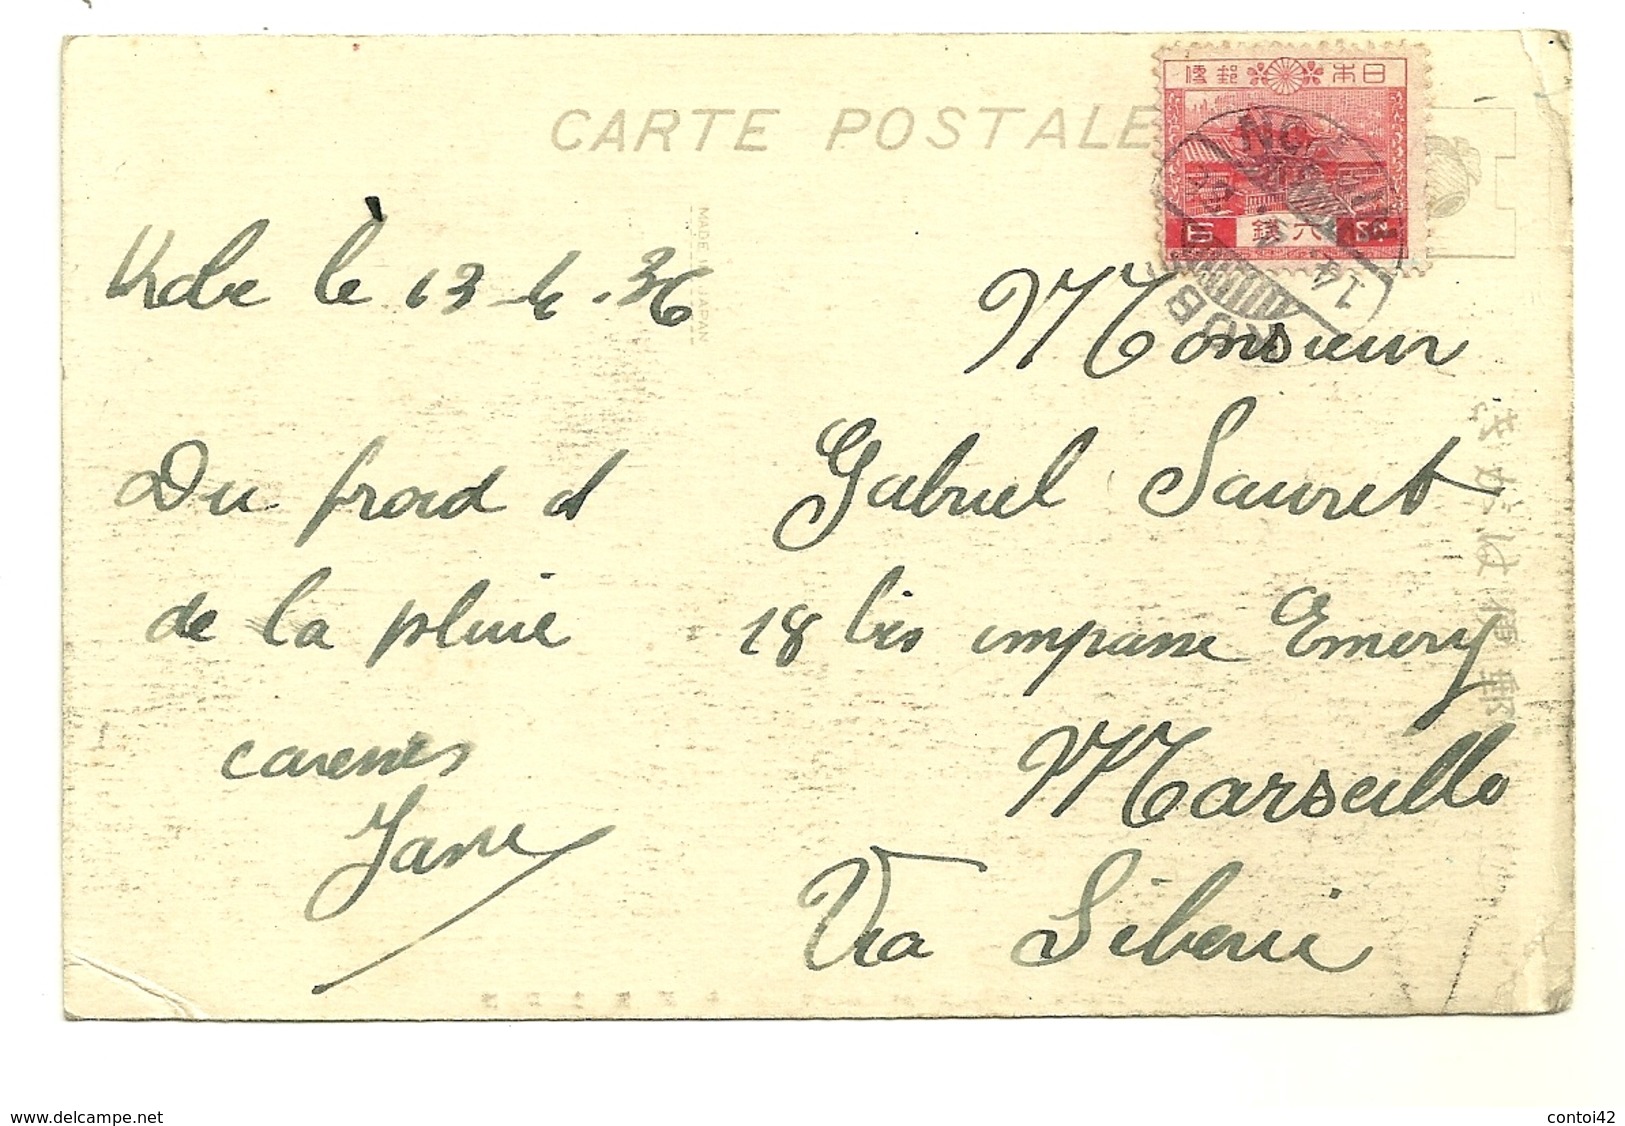 CARTE POSTALE
日本郵便
六銭
MADE IN JAPAN
KOBE
Kobe le 13-4-36
Du froid et
de la pluie
caresses
Monsieur
Gabriel Sauret
18 bis impasse Emery
Marseille
Via Siberie
郵便はがき
www.delcampe.net
contoi42